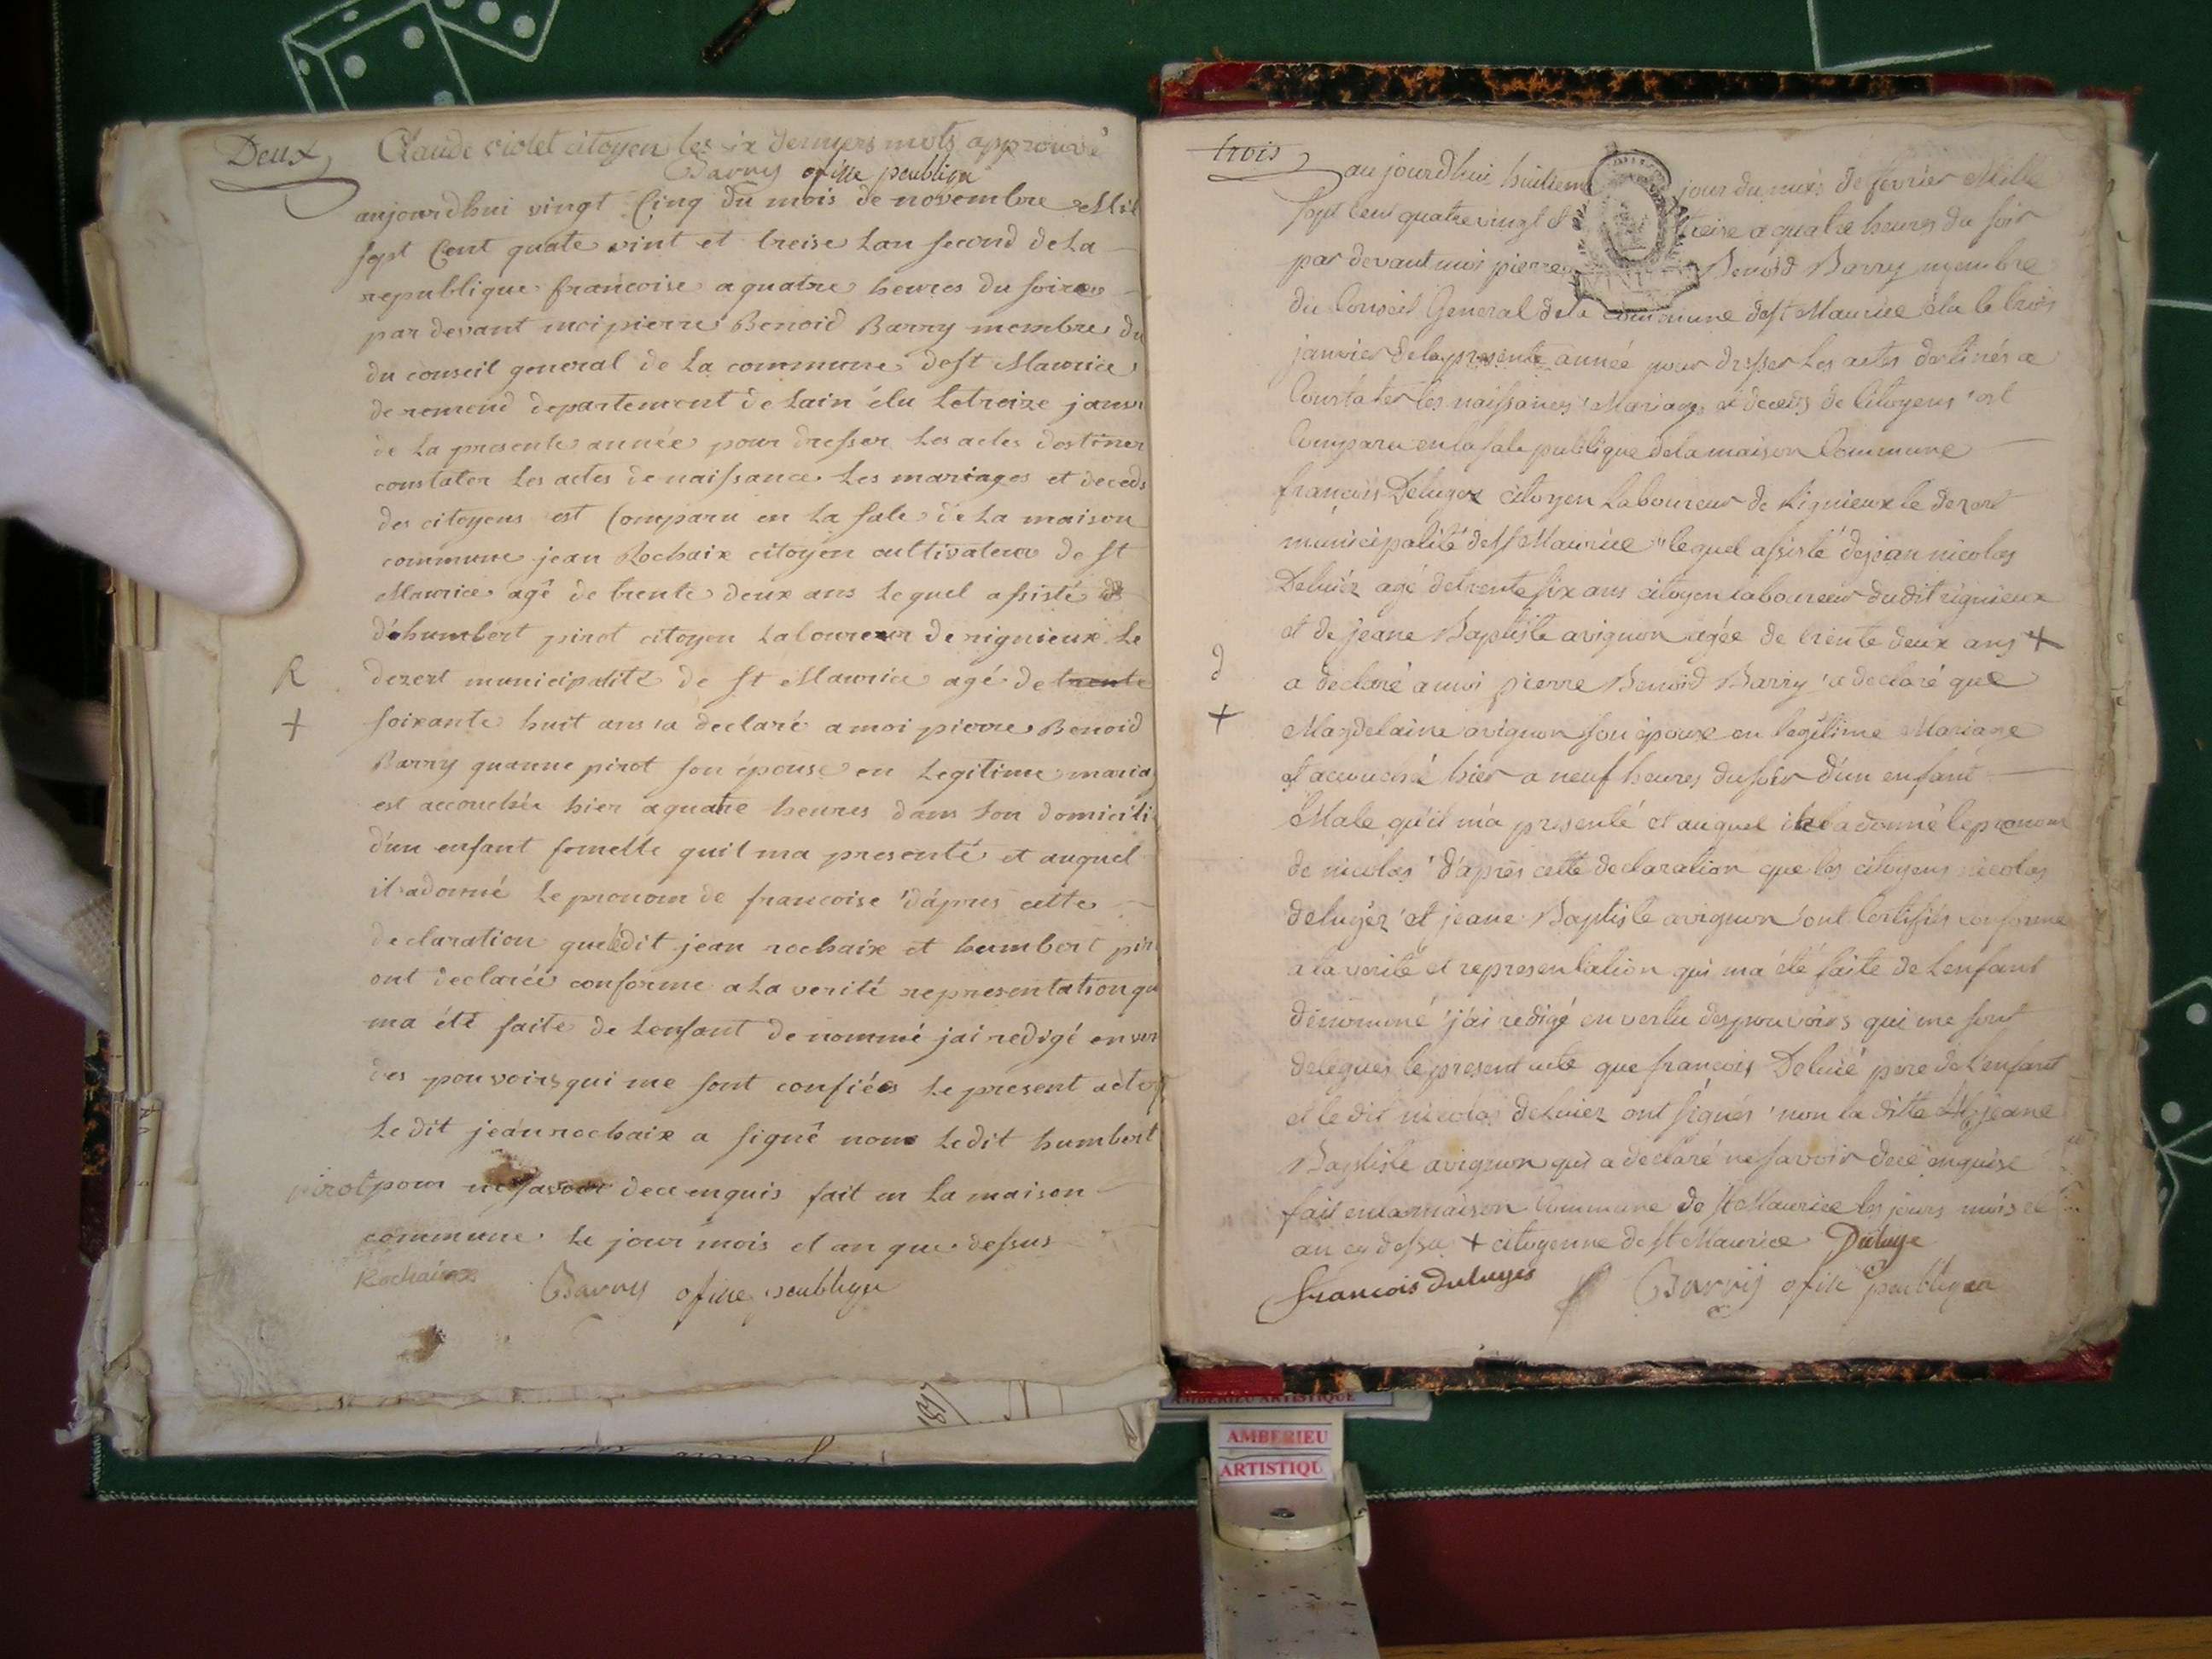 Deux
Claude violet citoyen les six derniers mots approuvé
Barry ofice peublique
aujourdhui vingt Cinq du mois de novembre Mil
sept Cent quate vint et treise Lan second de La
republique françoise a quatre heures du soir
par devant moi pierre Benoid Barry membre du
du conseil general de La commune de st Maurice
de remend departement de Lain élu Le treize janv
de La presente année pour dresser Les actes destiner
constater Les actes de naissance Les mariages et deceds
des citoyens est Comparu en La sale de La maison
commune jean Rochaix citoyen cultivateur de st
Maurice agé de trente deux ans Lequel assisté de
d'humbert pirot citoyen Laboureur de rignieux Le
R
dezert municipalité de st Maurice agé de trente
+
soixante huit ans a declaré a moi pierre Benoid
Barry quanne pirot son épouse en Legitime maria
est accouchée hier a quatre heures dans son domicili
d'un enfant femelle quil ma presenté et auquel
il a donné Le pronom de francoise d'áprus cette
declaration que ledit jean rochaix et humbert pir
ont declarée conforme a La verité representation qu
ma été faite de Lenfant denommé jai redigé en ver
des pouvoirs qui me sont confiées Le present acte
Le dit jean rochaix a signé non Ledit humbert
pirot pour ne savoir de ce enquis fait en La maison
commune Le jour mois et an que dessus
Rochaix
Barry ofice peublique
1817
trois
aujourdhui huitiem jour du mois de fevrier Mille
sept Cent quatrevingt et treize a quatre heures du soir
par devant moi pierre Benoid Barry membre
du Conseil General de la commune de st Maurice élu le trois
janvier de la presente année pour dresser Les actes destinés a
Constater les naissances Mariages et deceds de Citoyens est
Comparu en la sale publique de la maison Commune
françois Deluger citoyen Laboureur de Rignieux le dezert
municipalité de st Maurice lequel assisté de jean nicolas
Deluiéz agé de trente six ans citoyen laboureur dudit rignieux
et de jeane Baptiste avignon agée de trente deux ans +
d
a declaré a moi pierre Benoid Barry a declaré que
+
Magdelaine avignon son épouse en legitime Mariage
et accouché hier a neuf heures du soir d'un enfant
Male qu'il m'a presenté et auquel il a donné le pronom
de nicolas d'aprés cette declaration que les citoyens nicolas
deluyéz et jeane Baptiste avignon ont Certifiés conforme
a la verité et representation qui ma été faite de Lenfant
dénommé j'ai redigé en vertu des pouvoirs qui me sont
delegués le present acte que francois Deluié pere de L'enfant
et le dit nicolas deluiez ont signés non la ditte jeane
Baptiste avignon qui a declaré ne savoir de ce enquise
fait en la maison Commune de st Maurice les jours mois et
an cy dessu + citoyenne de st Maurice Duluye
francois duluyes
Barry ofice peublique
AMBERIEU ARTISTIQUE
AMBERIEU
ARTISTIQU